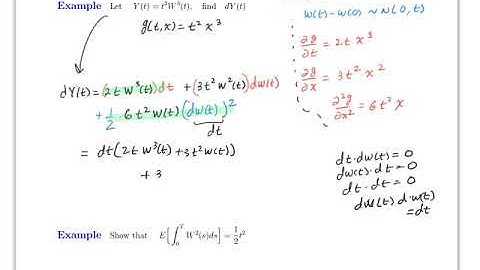 Example Let Y(t) = t²W³(t), find dY(t)
W(t) - W(0) ~ N(0, t)
g(t,x) = t² x³
∂g/∂t = 2t x³
∂g/∂x = 3t² x²
∂²g/∂x² = 6t² x
dY(t) = (2t W³(t))dt + (3t² W²(t))dW(t)
+ 1/2 6t² W(t) (dW(t))²
dt
= dt(2t W³(t) + 3t² W(t))
+ 3
dt · dW(t) = 0
dW(t) · dt = 0
dt · dt = 0
dW(t) d·W(t)
= dt
Example Show that E[∫₀ᵀ W²(s)ds] = 1/2 t²